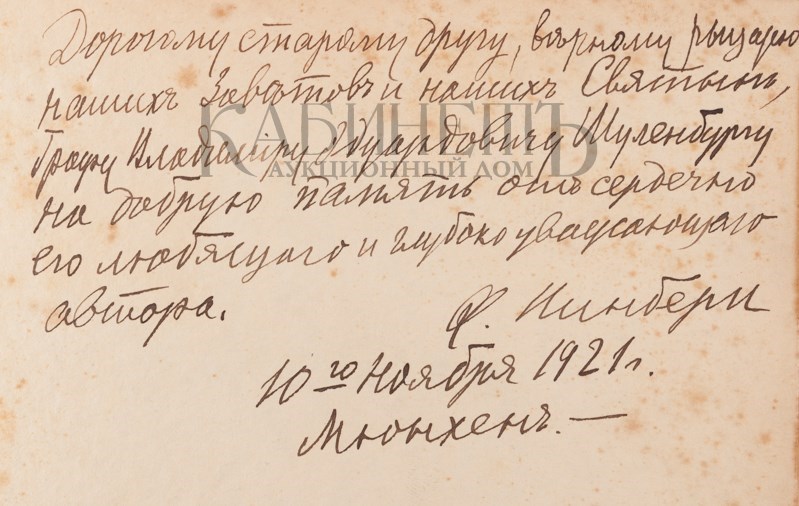 Дорогому старому другу, вѣрному рыцарю
нашихъ Завѣтовъ и нашихъ Святынь,
Графу Владиміру Эдуардовичу Шуленбургу
на добрую память отъ сердечно
его любящаго и глубоко уважающаго
автора.
Ф. Винберг
10го Ноября 1921 г.
Мюнхенъ. —
КАБИНЕТЪ
АУКЦИОННЫЙ ДОМ